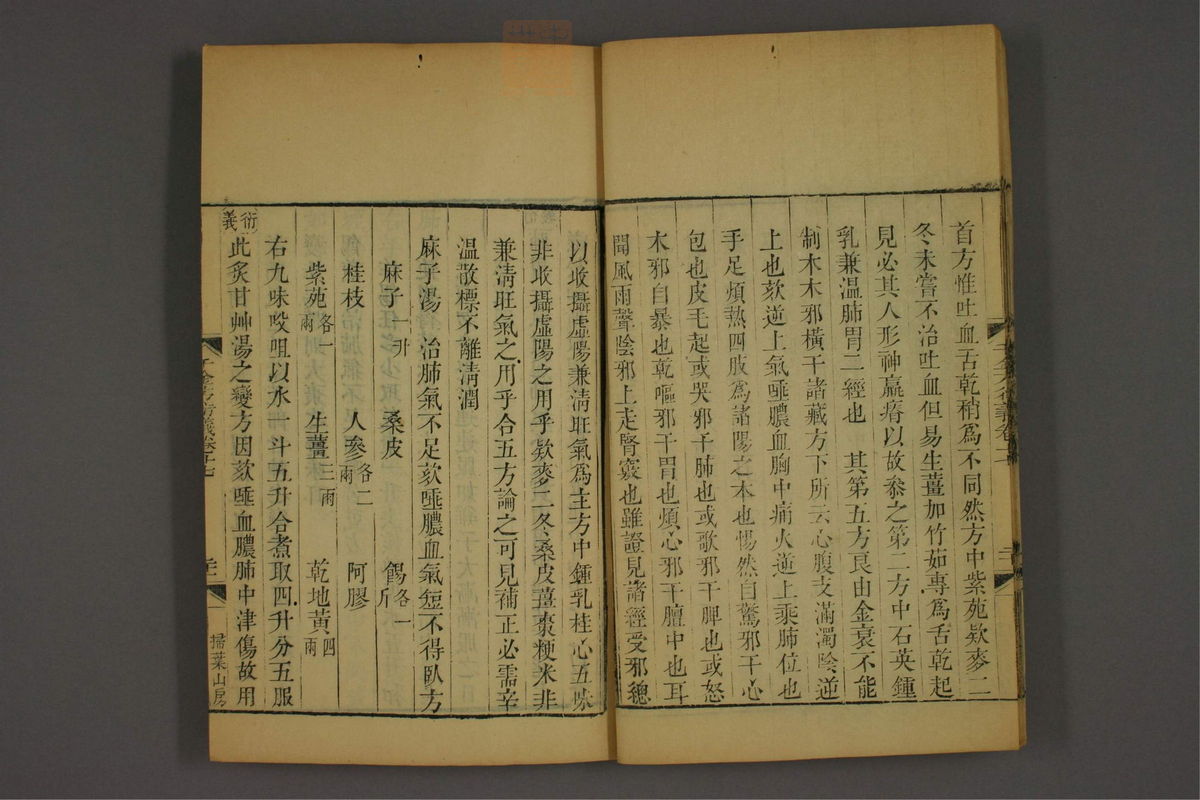 首方惟吐血舌乾稍為不同然方中紫苑欵麥二
冬未嘗不治吐血但易生薑加竹茹專為舌乾起
見必其人形神羸瘠以故叅之第二方中石英鍾
乳兼温肺胃二經也 其第五方良由金衰不能
制木木邪橫干諸藏方下所云心腹支滿濁陰逆
上也欬逆上氣唾膿血胸中痛火逆上乘肺位也
手足煩熱四肢為諸陽之本也惕然自驚邪干心
包也皮毛起或哭邪干肺也或歌邪干脾也或怒
木邪自暴也乾嘔邪干胃也煩心邪干膻中也耳
聞風雨聲陰邪上走腎竅也雖證見諸經受邪總
以收攝虛陽兼清旺氣為主方中鍾乳桂心五味
非收攝虛陽之用乎欵麥二冬桑皮薑棗粳米非
兼清旺氣之用乎合五方論之可見補正必需辛
温散標不離清潤
麻子湯 治肺氣不足欬唾膿血氣短不得臥方
麻子一升 桑皮 餳各一斤
桂枝 人參各二兩 阿膠
紫苑各一兩 生薑三兩 乾地黃四兩
右九味㕮咀以水一斗五升合煮取四升分五服
衍義 此炙甘艸湯之變方因欬唾血膿肺中津傷故用
千金方衍義卷十七
掃葉山房